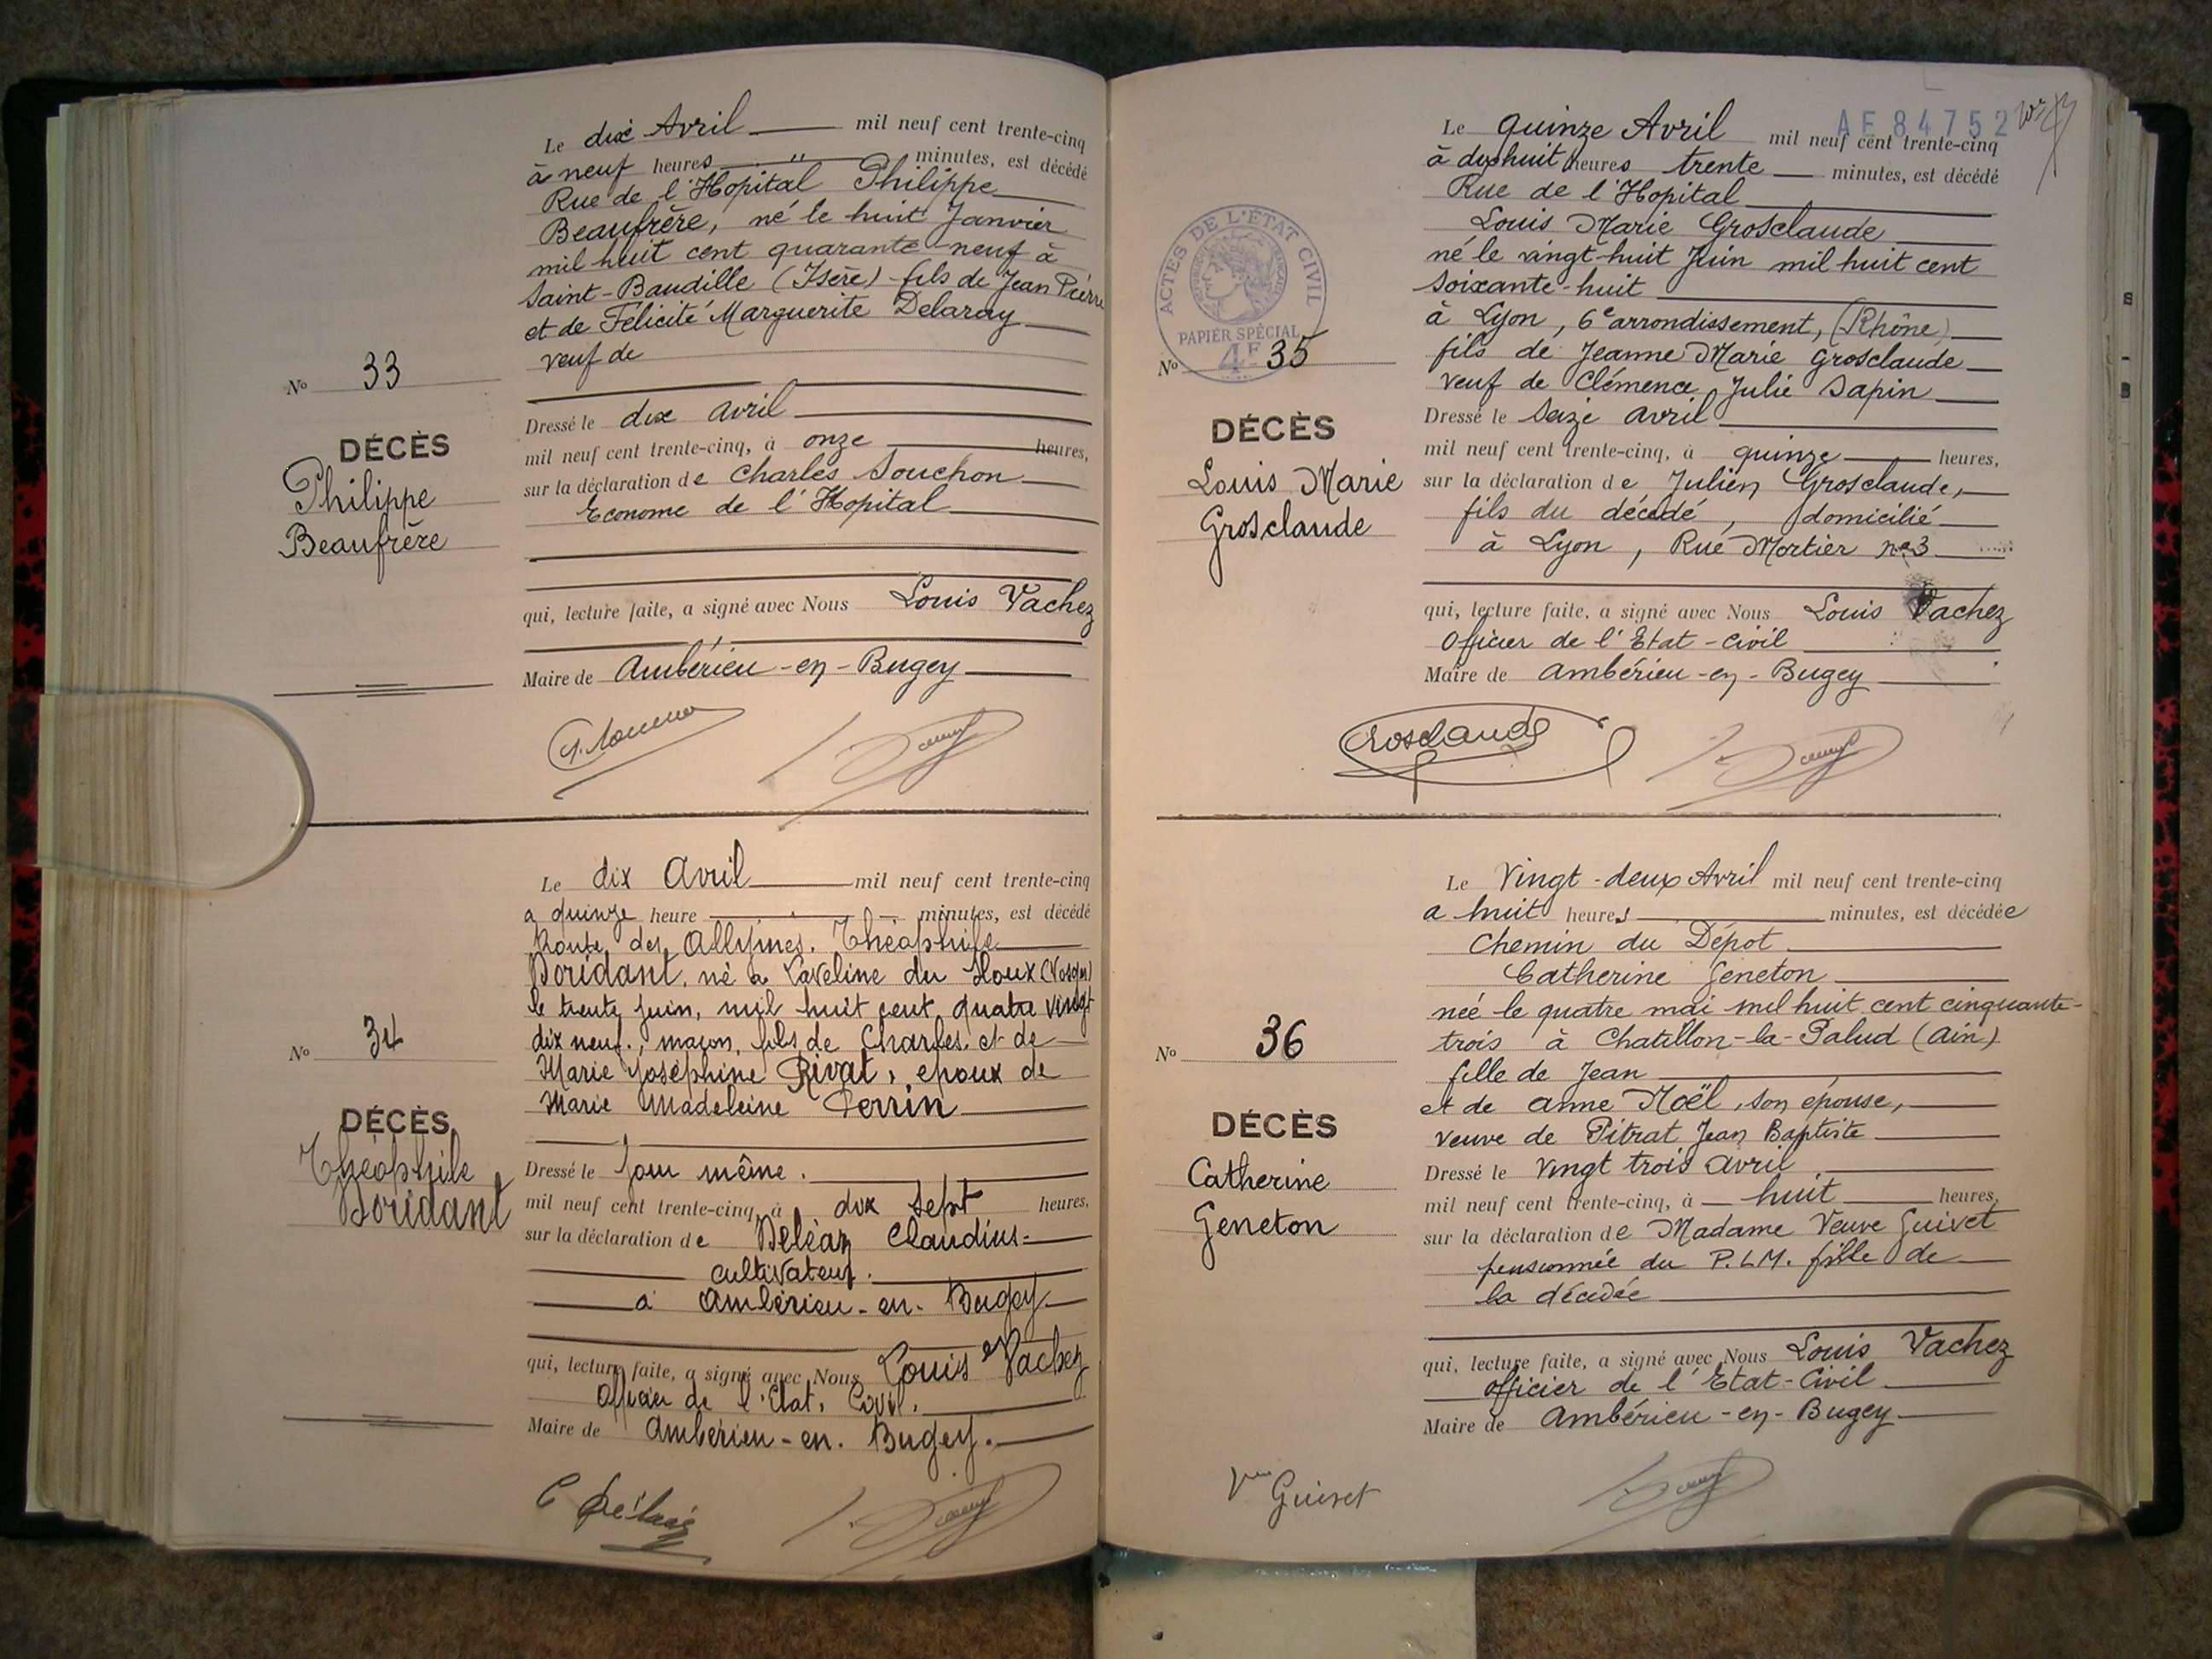 Le dix Avril mil neuf cent trente-cinq
à neuf heures " minutes, est décédé
Rue de l'Hopital Philippe
Beaufrère, né le huit Janvier
mil huit cent quarante-neuf à
Saint-Baudille (Isère) fils de Jean Pierre
et de Félicité Marguerite Delaray
veuf de
No 33
DÉCÈS
Philippe
Beaufrère
Dressé le dix avril
mil neuf cent trente-cinq, à onze heures,
sur la déclaration de Charles Souchon
Econome de l'Hopital
qui, lecture faite, a signé avec Nous Louis Vachez
Maire de Ambérieu-en-Bugey
Le dix Avril mil neuf cent trente-cinq
a quinze heure minutes, est décédé
Route des Allymes. Théophile
Doridant, né à Laveline du Houx (Vosges)
le trente juin, mil huit cent quatre vingt
dix neuf, maçon, fils de Charles et de
Marie Joséphine Rivat, époux de
Marie Madeleine Perrin
No 34
DÉCÈS
Théophile
Doridant
Dressé le Jour même.
mil neuf cent trente-cinq, à dix sept heures,
sur la déclaration de Deléaz Claudius
cultivateur.
à Ambérieu-en-Bugey
qui, lecture faite, a signé avec Nous Louis Vachez
Officier de l'Etat. Civil.
Maire de Ambérieu-en-Bugey.
AE 84752
Le quinze Avril mil neuf cent trente-cinq
à dix huit heures trente minutes, est décédé
Rue de l'Hopital
Louis Marie Grosclaude
né le vingt-huit Juin mil huit cent
soixante-huit
à Lyon, 6e arrondissement, (Rhône)
fils de Jeanne Marie Grosclaude
veuf de Clémence Julie Sapin
ACTES DE L'ÉTAT CIVIL
RÉPUBLIQUE FRANÇAISE
PAPIER SPÉCIAL
4F
No 35
DÉCÈS
Louis Marie
Grosclaude
Dressé le Seize avril
mil neuf cent trente-cinq, à quinze heures,
sur la déclaration de Julien Grosclaude,
fils du décédé, domicilié
à Lyon, Rue Mortier no 3
qui, lecture faite, a signé avec Nous Louis Vachez
Officier de l'Etat-Civil
Maire de Ambérieu-en-Bugey
Grosclaude
Le Vingt-deux Avril mil neuf cent trente-cinq
a huit heures minutes, est décédée
Chemin du Dépot
Catherine Geneton
née le quatre mai mil huit cent cinquante-
trois à Chatillon-la-Palud (Ain)
fille de Jean
et de Anne Noël, son épouse,
veuve de Pitrat Jean Baptiste
No 36
DÉCÈS
Catherine
Geneton
Dressé le vingt trois avril
mil neuf cent trente-cinq, à huit heures,
sur la déclaration de Madame Veuve Guivet
pensionnée du P.L.M. fille de
la décédée
qui, lecture faite, a signé avec Nous Louis Vachez
officier de l'Etat-Civil
Maire de Ambérieu-en-Bugey
Vve Guivet